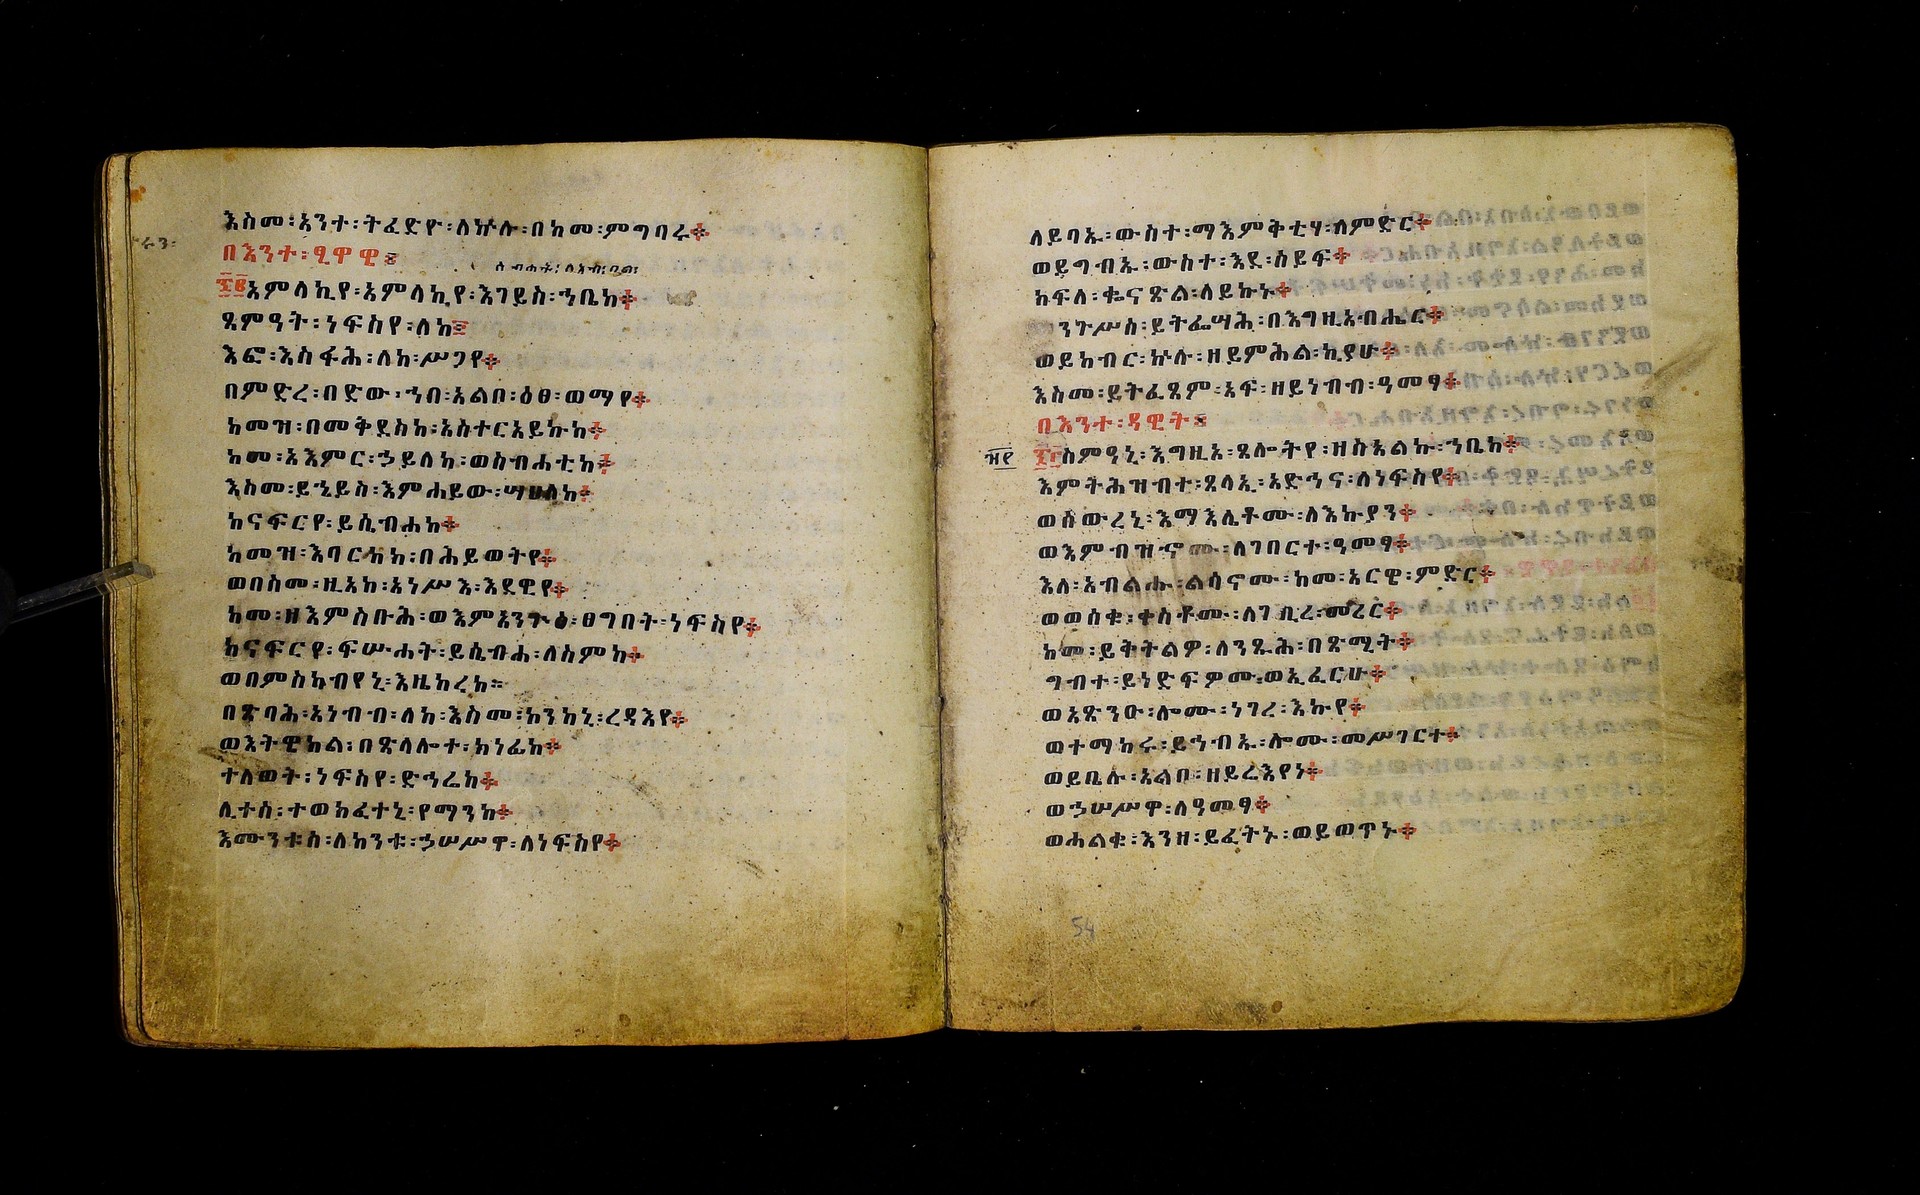 እስመ፡አንተ፡ትፈድዮ፡ለኵሉ፡በከመ፡ምግባሩ፨
በእንተ፡ፂዋዌ፤
አምላኪየ፡አምላኪየ፡እገይስ፡ኀቤከ፨
ጸምዓት፡ነፍስየ፡ለከ፤
እፎ፡እስፋሕ፡ለከ፡ሥጋየ፨
በምድረ፡በድው፡ኀበ፡አልቦ፡ዕፀ፡ወማየ፨
ከመዝ፡በመቅደስከ፡አስተርአይኩከ፨
ከመ፡አእምር፡ኃይለከ፡ወስብሐቲከ፨
እስመ፡ይኄይስ፡እምሐይው፡ሣህለከ፨
ከናፍርየ፡ይሴብሐከ፨
ከመዝ፡እባርከከ፡በሕይወትየ፨
ወበስመ፡ዚአከ፡አነሥእ፡እደዊየ፨
ከመ፡ዘእምስቡሕ፡ወእምአንጕዕ፡ፀግበት፡ነፍስየ፨
ከናፍርየ፡ፍሡሐት፡ይሴብሐ፡ለስምከ፨
ወበምስካብየኒ፡እዜከረከ።
በጽባሕ፡አነብብ፡ለከ፡እስመ፡ከንከኒ፡ረዳእየ፨
ወእትዌከል፡በጽላሎተ፡ክነፊከ፨
ተለወት፡ነፍስየ፡ድኅሬከ፨
ሊተሰ፡ተወክፈተኒ፡የማንከ፨
እሙንቱሰ፡ለከንቱ፡ኃሠሥዋ፡ለነፍስየ፨
ለይባኡ፡ውስተ፡ማእምቅቲሃ፡ለምድር፨
ወይግብኡ፡ውስተ፡እደ፡ሰይፍ፨
ክፍለ፡ቈናጽል፡ለይኩኑ፨
ንጉሥሰ፡ይትፌሣሕ፡በእግዚአብሔር፨
ወይከብር፡ኵሉ፡ዘይምሕል፡ኪያሁ፨
እስመ፡ይትፈጸም፡አፍ፡ዘይነብብ፡ዓመፃ፨
በእንተ፡ዳዊት፤
ስምዓኒ፡እግዚአ፡ጸሎትየ፡ዘስእልኩ፡ኀቤከ፨
እምትሕዝብተ፡ጸላኢ፡አድኅና፡ለነፍስየ፨
ወሰውረኒ፡እማእሌቶሙ፡ለእኩያን፨
ወእምብዝኆሙ፡ለገበርተ፡ዓመፃ፨
እለ፡አብልሑ፡ልሳኖሙ፡ከመ፡አርዌ፡ምድር፨
ወወሰቁ፡ቀስቶሙ፡ለገቢረ፡መሪር፨
ከመ፡ይቅትልዎ፡ለንጹሕ፡በጽሚት፨
ግብተ፡ይነድፍዎሙ፡ወኢፈርሁ፨
ወአጽንዑ፡ሎሙ፡ነገረ፡እኩየ፨
ወተማከሩ፡ይኅብኡ፡ሎሙ፡መሥገርተ፨
ወይቤሉ፡አልቦ፡ዘይሬእየነ፨
ወኃሠሥዋ፡ለዓመፃ፨
ወሐልቁ፡እንዘ፡ይፈትኑ፡ወይወጥኑ፨
54